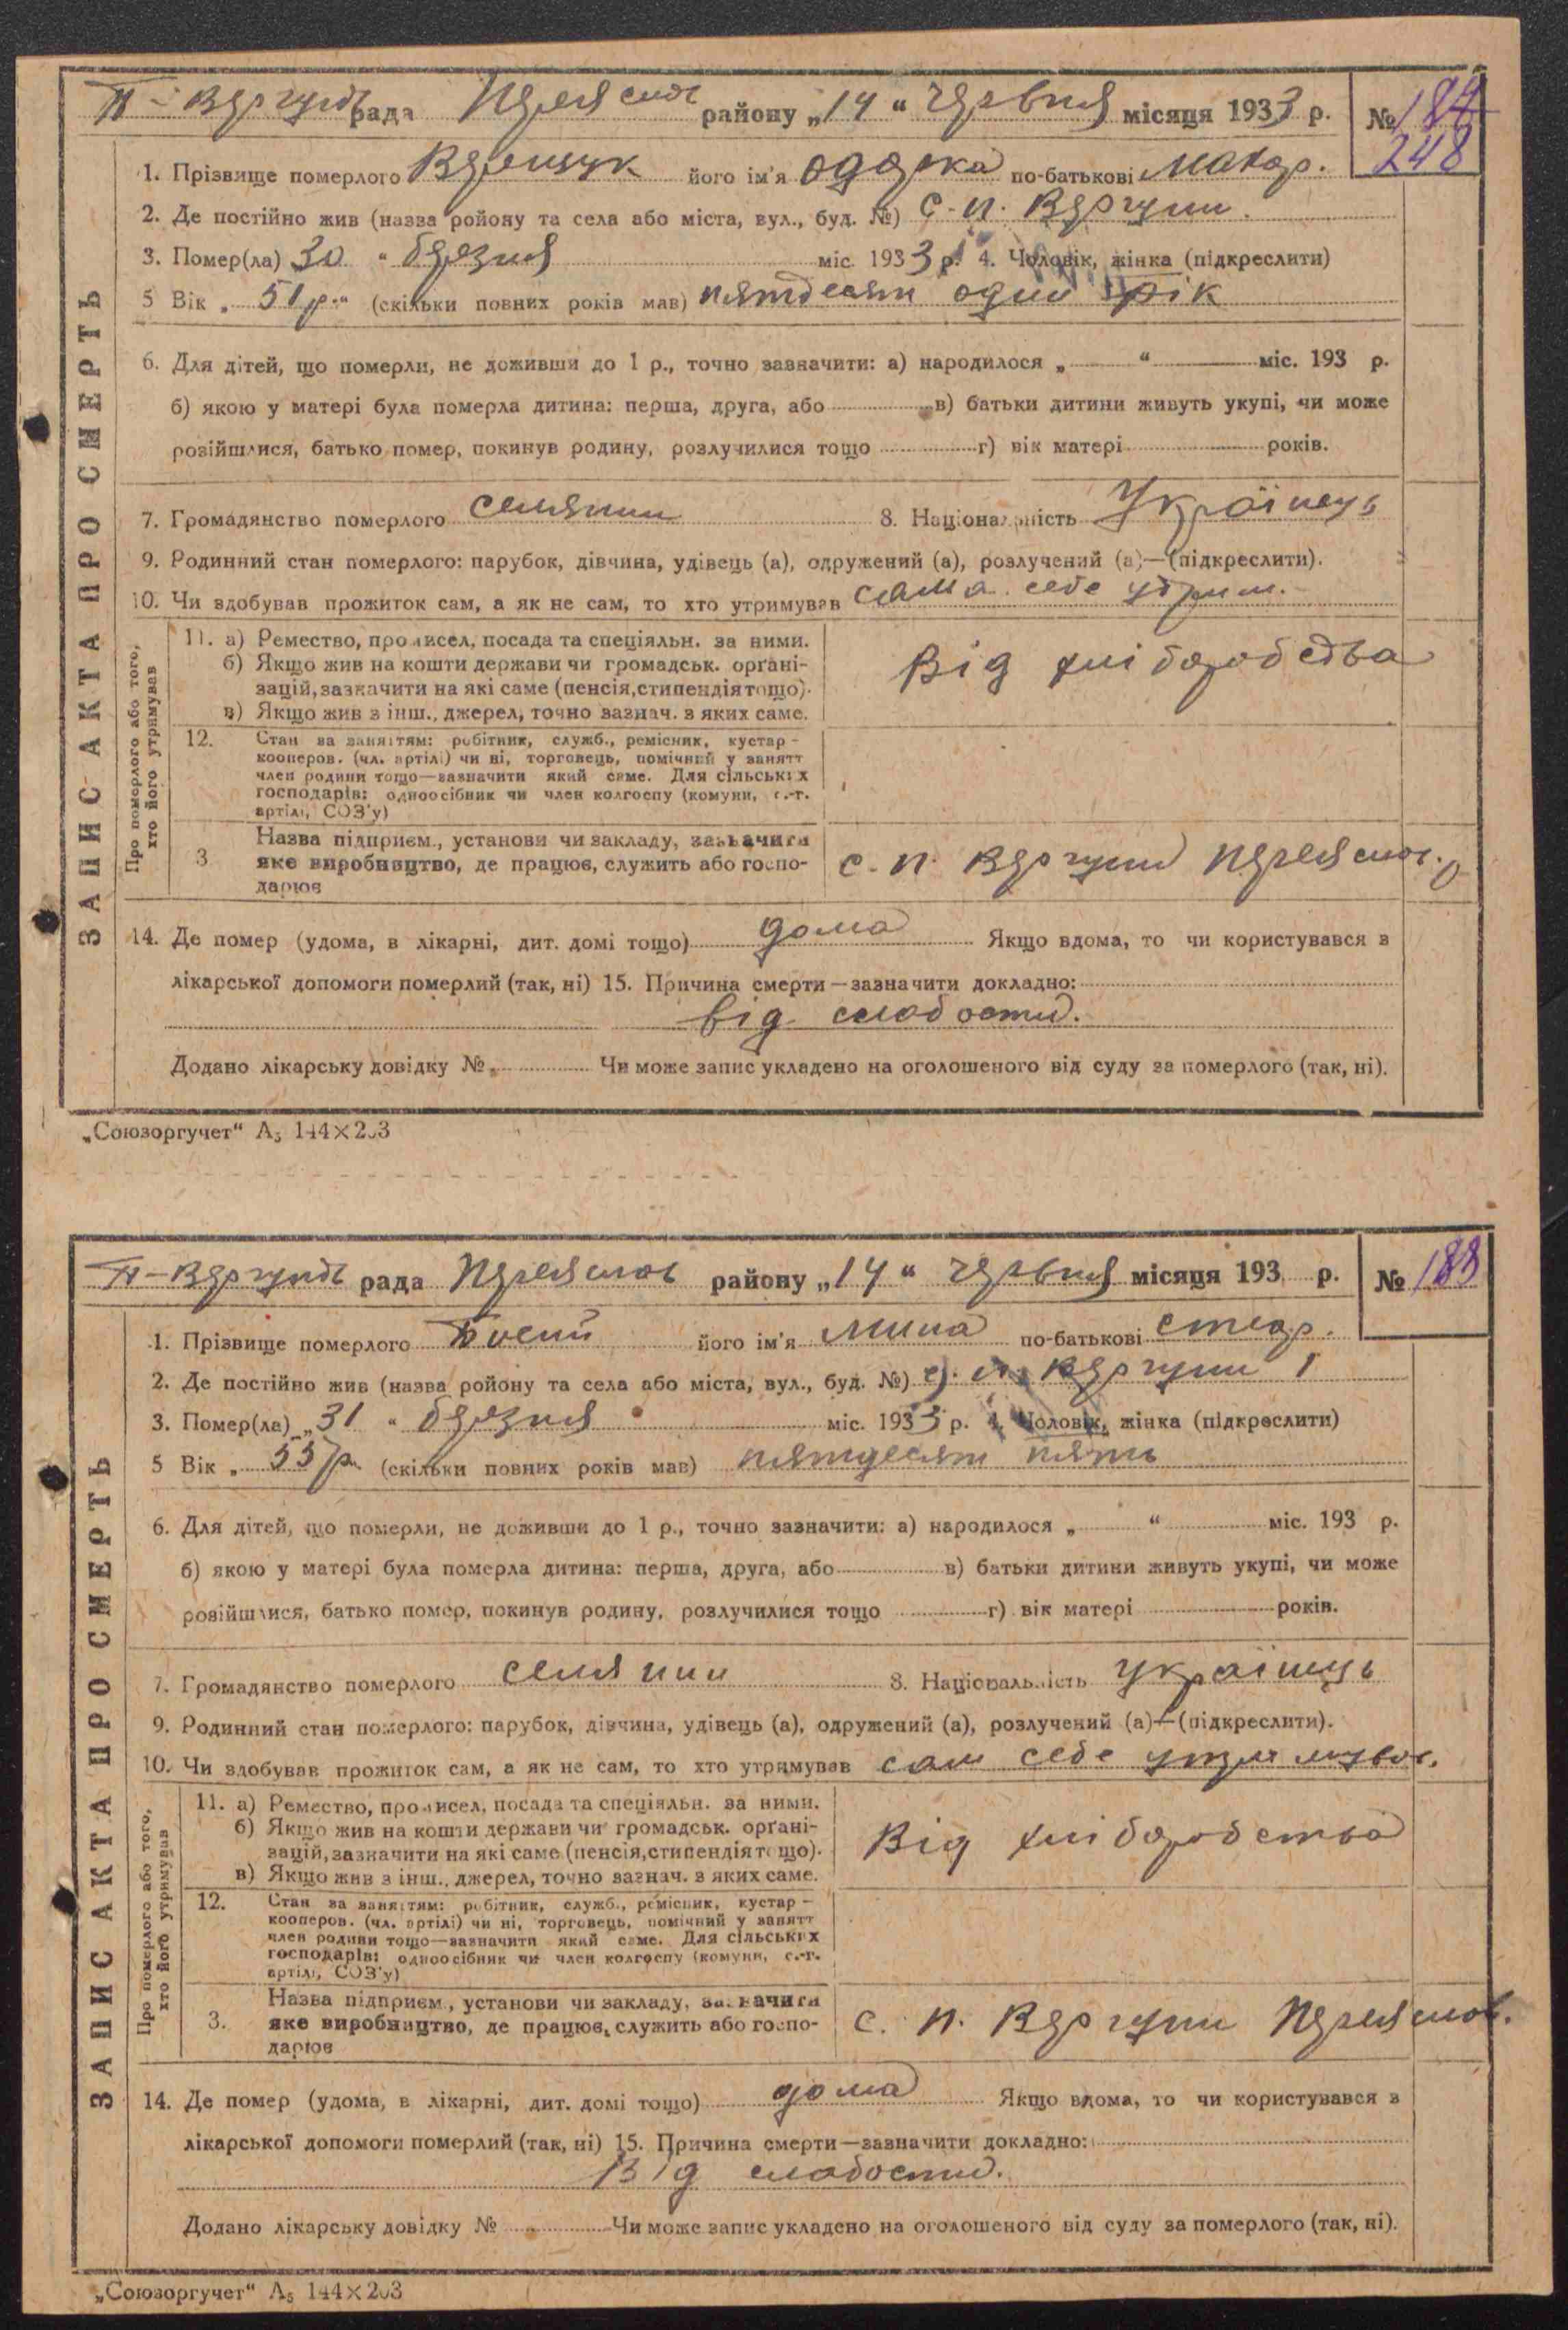 П-Вергунів рада Переяслів району „14“ червня місяця 1933 р. № 184
248
1. Прізвище померлого Верещук його ім'я Одарка по-батькові Макар.
2. Де постійно жив (назва ройону та села або міста, вул., буд. №) с. П. Вергуни.
3. Помер(ла) 30 “ березня міс. 1933 р. 4. Чоловік, жінка (підкреслити)
5 Вік „ 51 р. “ (скільки повних років мав) пятдесят один рік
6. Для дітей, що померли, не доживши до 1 р., точно зазначити: а) народилося „ “ міс. 193 р.
б) якою у матері була померла дитина: перша, друга, або в) батьки дитини живуть укупі, чи може
розійшлися, батько помер, покинув родину, розлучилися тощо г) вік матері років.
7. Громадянство померлого селянин 8. Національність Українець
9. Родинний стан померлого: парубок, дівчина, удівець (а), одружений (а), розлучений (а)—(підкреслити).
10. Чи здобував прожиток сам, а як не сам, то хто утримував сама себе утрим.
ЗАПИС АКТА ПРО СМЕРТЬ
Про померлого або того,
хто його утримував
11. а) Ремество, промисел, посада та спеціяльн. за ними.
б) Якщо жив на кошти держави чи громадськ. орґані-
зацій, зазначити на які саме (пенсія, стипендія тощо).
в) Якщо жив з інш., джерел, точно зазнач. з яких саме.
Від хліборобства
12. Стан за заняттям: робітник, служб., ремісник, кустар –
кооперов. (чл. артілі) чи ні, торговець, помічний у занятт
член родини тощо—зазначити який саме. Для сільських
господарів: одноосібник чи член колгоспу (комуни, с.-г.
артілі, СОЗ'у)
3 Назва підприєм., установи чи закладу, зазначити
яке виробництво, де працює, служить або госпо-
дарює
с. П. Вергуни Переяслов. р
14. Де помер (удома, в лікарні, дит. домі тощо) дома Якщо вдома, то чи користувався з
лікарської допомоги померлий (так, ні) 15. Причина смерти—зазначити докладно:
від слабости.
Додано лікарську довідку № Чи може запис укладено на оголошеного від суду за померлого (так, ні).
„Союзоргучет“ А5 144×203
П-Вергунів рада Переяслов району „14“ червня місяця 193 р. № 183
1. Прізвище померлого його ім'я Мина по-батькові
2. Де постійно жив (назва ройону та села або міста, вул., буд. №) с. П. Вергуни
3. Помер(ла) „31 “ березня міс. 1933 р. 4. Чоловік, жінка (підкреслити)
5 Вік „ 55 р. (скільки повних років мав) пятдесят пять
6. Для дітей, що померли, не доживши до 1 р., точно зазначити: а) народилося „ “ міс. 193 р.
б) якою у матері була померла дитина: перша, друга, або в) батьки дитини живуть укупі, чи може
розійшлися, батько помер, покинув родину, розлучилися тощо г) вік матері років.
7. Громадянство померлого селянин 8. Національність українець
9. Родинний стан померлого: парубок, дівчина, удівець (а), одружений (а), розлучений (а)—(підкреслити).
10. Чи здобував прожиток сам, а як не сам, то хто утримував сам себе утримував.
ЗАПИС АКТА ПРО СМЕРТЬ
Про померлого або того,
хто його утримував
11. а) Ремество, промисел, посада та спеціяльн. за ними.
б) Якщо жив на кошти держави чи громадськ. орґані-
зацій, зазначити на які саме (пенсія, стипендія тощо).
в) Якщо жив з інш., джерел, точно зазнач. з яких саме.
Від хліборобства
12. Стан за заняттям: робітник, служб., ремісник, кустар –
кооперов. (чл. артілі) чи ні, торговець, помічний у занятт
член родини тощо—зазначити який саме. Для сільських
господарів: одноосібник чи член колгоспу (комуни, с.-г.
артілі, СОЗ'у)
3. Назва підприєм., установи чи закладу, зазначити
яке виробництво, де працює, служить або госпо-
дарює
с. П. Вергуни Переяслов.
14. Де помер (удома, в лікарні, дит. домі тощо) дома Якщо вдома, то чи користувався з
лікарської допомоги померлий (так, ні) 15. Причина смерти—зазначити докладно:
Від слабости.
Додано лікарську довідку № „ Чи може запис укладено на оголошеного від суду за померлого (так, ні).
„Союзоргучет“ А5 144×203